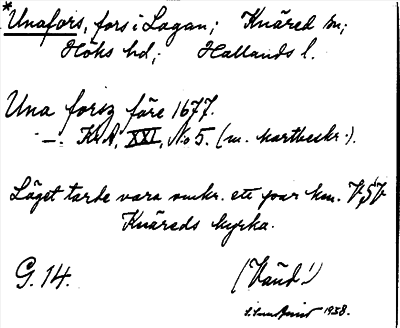 *Unafors, fors i Lagan; Knäred sn;
Höks hd; Hallands l.
Una forsz före 1677.
—„— KrA, XXI, No 5. (m. kartbeskr.).
Läget torde vara omkr. ett par km. V,SV
Knäreds kyrka.
G. 14.
1958.